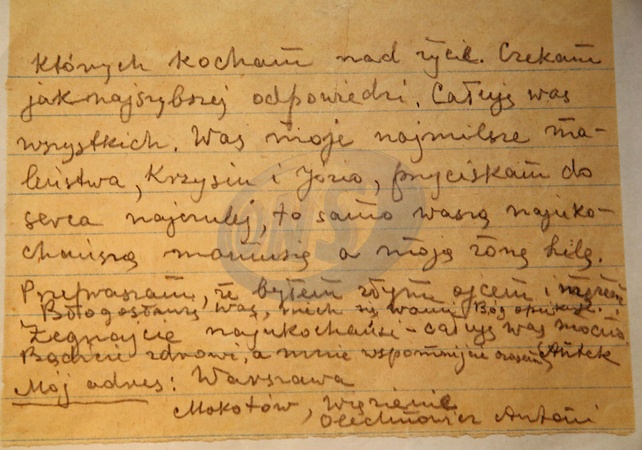 których kocham nad życie. Czekam
jaknajszybszej odpowiedzi. Całuję was
wszystkich. Was moje najmilsze ma-
leństwa, Krzysiu i Jzio, przyciskam do
serca najczulej, to samo waszą najuko-
chańszą mamusię a moją żonę Lilę.
Przepraszam, że byłem złym ojcem i mężem
Błogosławię was, niech się wami Bóg opiekuje.
Żegnajcie najukochańsi - całuję was mocno
Bądźcie zdrowi, a mnie wspomnijcie czasem, Antek
Mój adres: Warszawa
Mokotów, Więzienie
Olechnowicz Antoni
ONS